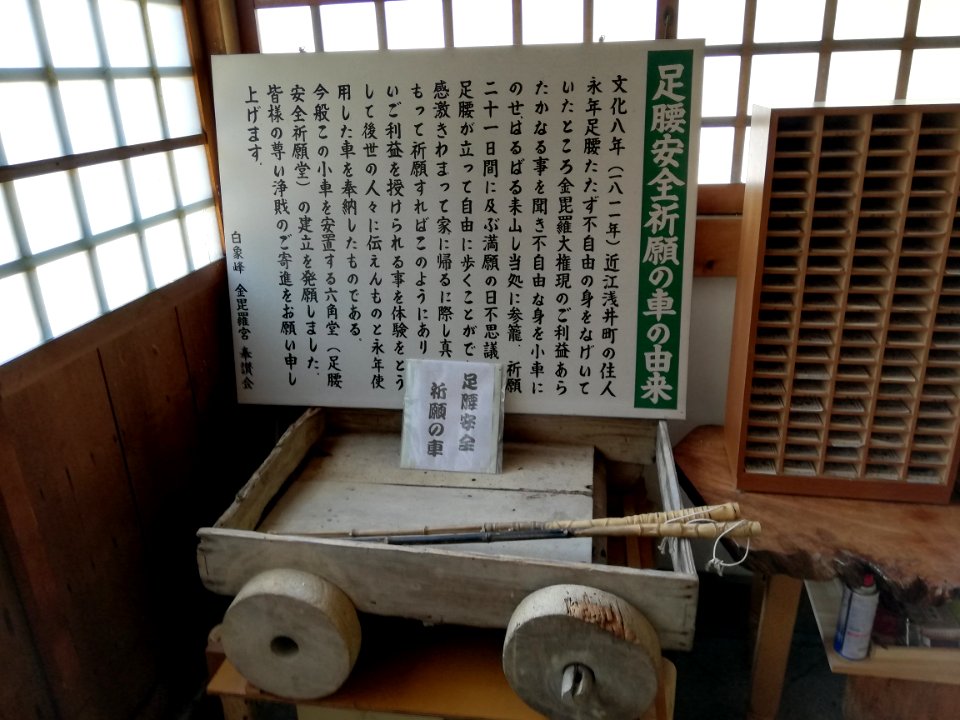 足腰安全祈願の車の由来
文化八年（一八一一年）近江浅井町の住人
永年足腰たたず不自由の身をなげいて
いたところ金毘羅大権現のご利益あら
たかなる事を聞き不自由な身を小車に
のせ、はるばる来山し当処に参籠、祈願
二十一日間に及ぶ満願の日不思議
足腰が立って自由に歩くことがで
感激きわまって家に帰るに際し真
もって祈願すればこのようにあり
いご利益を授けられる事を体験をとう
して後世の人々に伝えんものと永年使
用した車を奉納したものである。
今般この小車を安置する六角堂（足腰
安全祈願堂）の建立を発願しました。
皆様の尊い浄財のご寄進をお願い申し
上げます。
白象峰 金毘羅宮 奉讃会
足腰安全
祈願の車